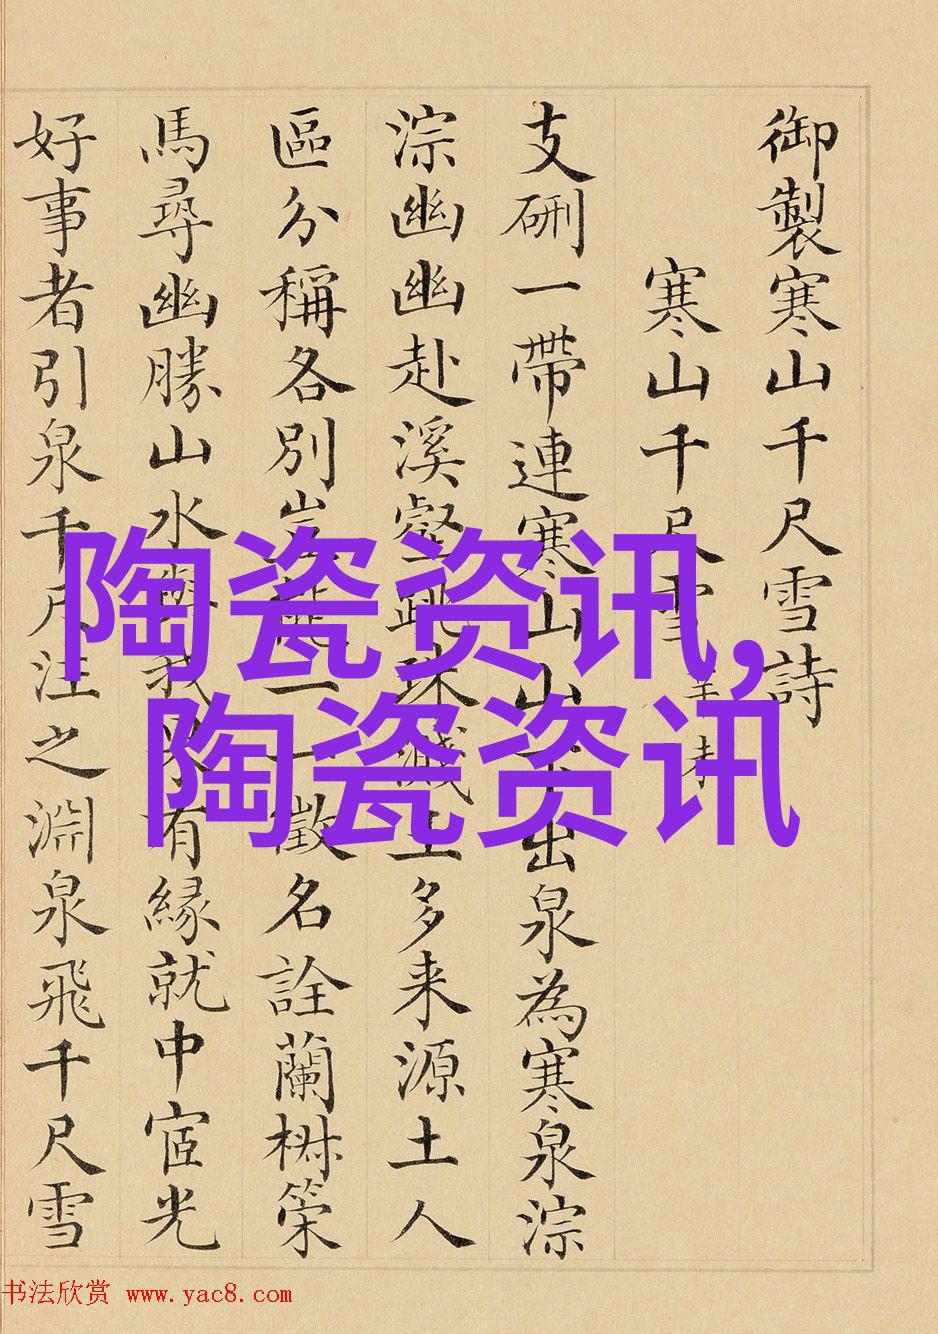 御製寒山千尺雪詩
寒山千尺雪
支硎一帶連寒山山下出泉為寒泉淙
淙幽幽赴溪壑跳珠濺玉多来源土人
區分稱各別豈一一徵名詮蘭椒策
馬尋幽勝山水與我果有緣就中宧光
好事者引泉千尺注之淵泉飛千尺雪
陶瓷资讯,
陶瓷资讯
书法欣赏 www.yac8.com